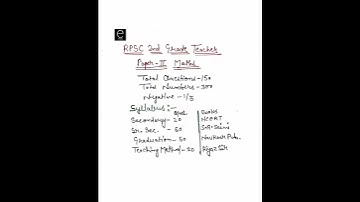 e
RPSC 2nd Grade Teacher
Paper-II Maths
Total Questions-150
Total Numbers-300
Negative -1/3
Syllabus:-
Ques. Books
Secondary- 20 NCERT
Sr. Sec. - 50 S.R. Saini
Graduation-50 Navkash Pub.
Teaching Method-20